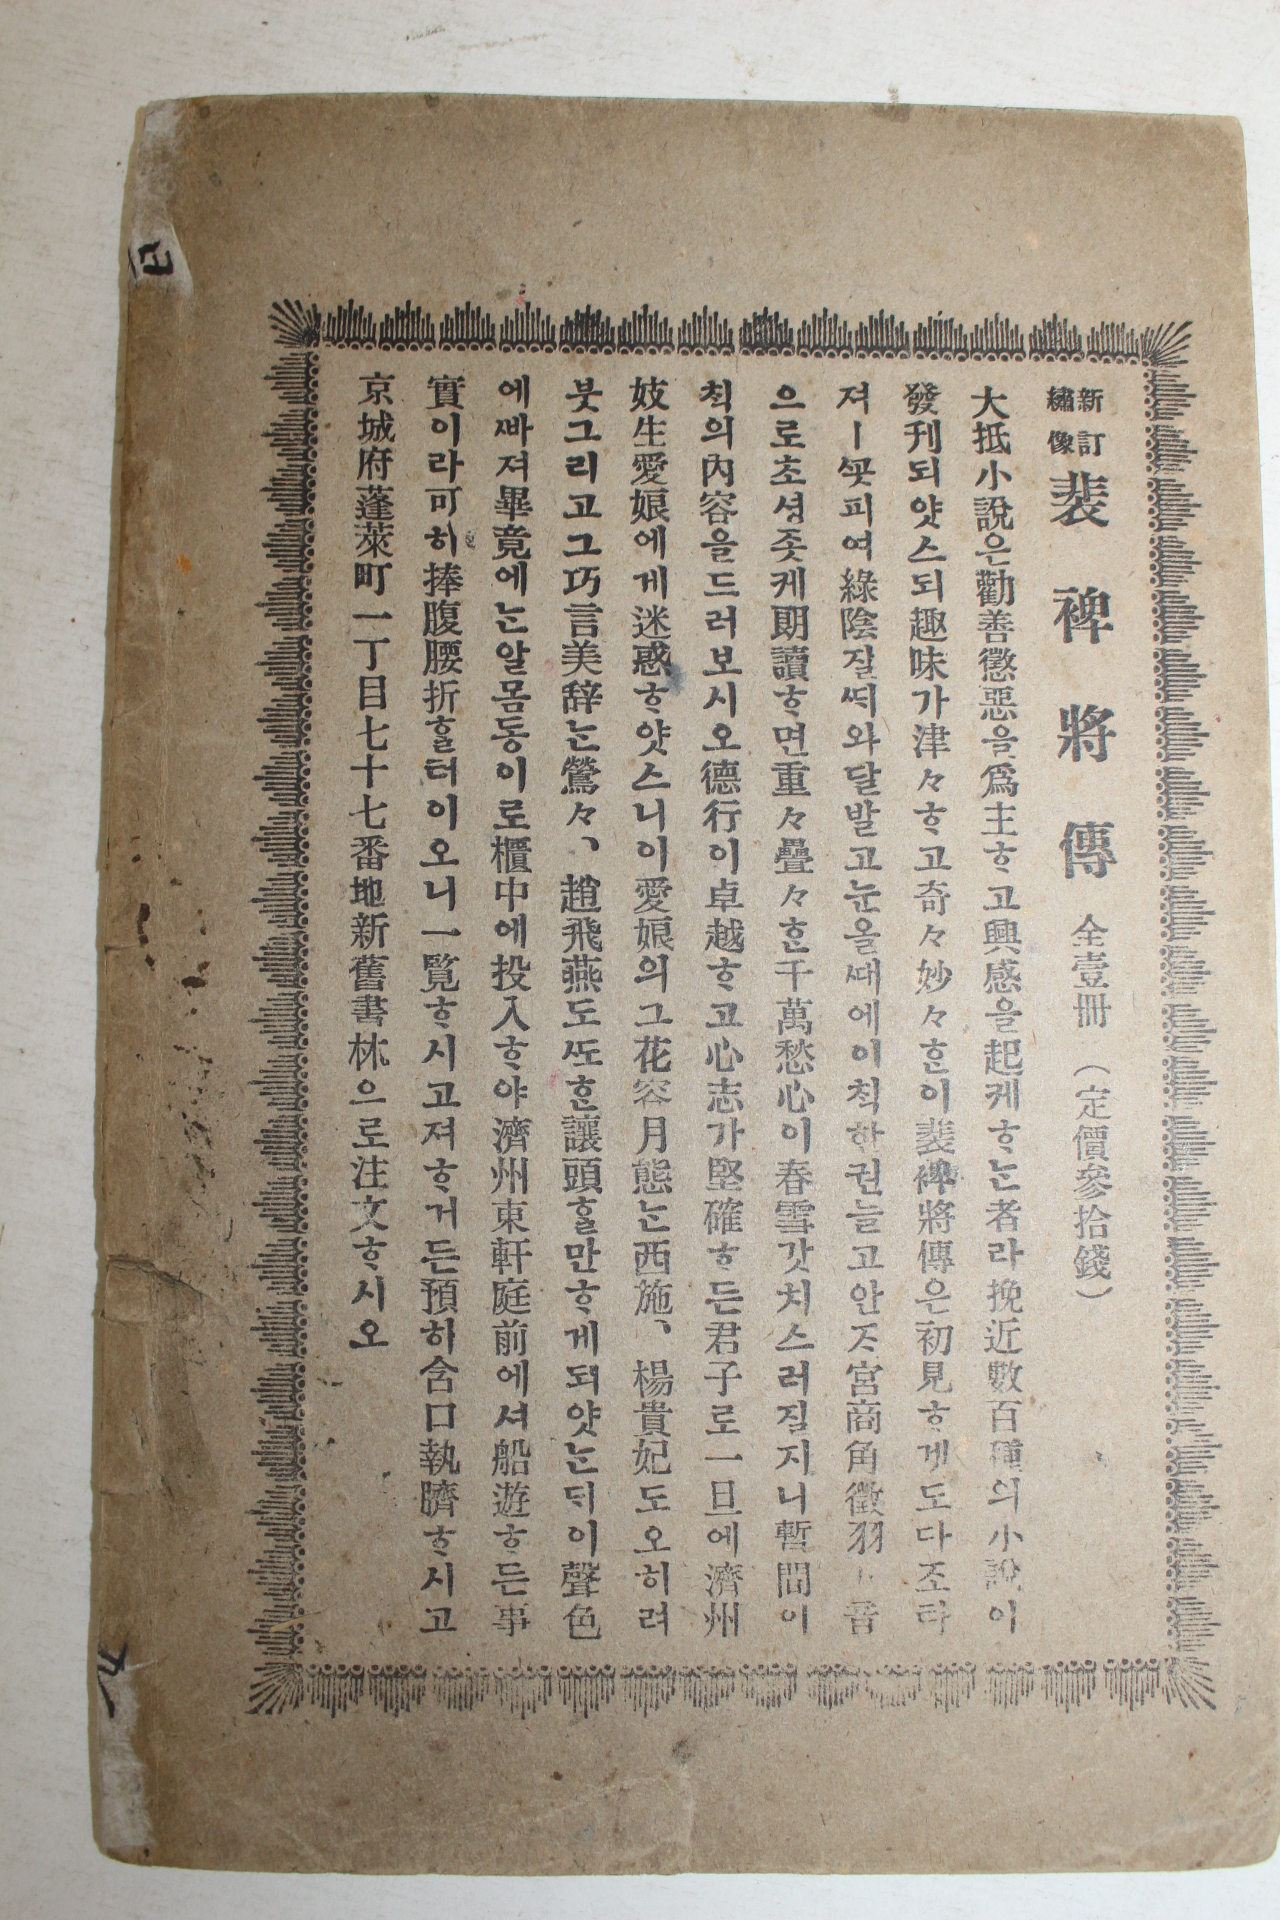 新訂
繡像
裴裨將傳 全壹冊 (定價參拾錢)
大抵小說은勸善懲惡을爲主ᄒᆞ고興感을起케ᄒᆞᄂᆞᆫ者라挽近數百種의小說이
發刊되얏스되趣味가津々ᄒᆞ고奇々妙々ᄒᆞᆫ이裴裨將傳은初見ᄒᆞ게도다조타
져ㅣᄭᅩᆺ피여綠陰질ᄯᅴ와달발고눈올ᄯᅢ에이ᄎᆡᆨ한권늘고안ᄌᆞ宮商角徵羽 音
으로초셩죳케朗讀ᄒᆞ면重々疊々ᄒᆞᆫ千萬愁心이春雪갓치스러짐지니暫間이
ᄎᆡᆨ의內容을드러보시오德行이卓越ᄒᆞ고心志가堅確ᄒᆞ든君子로一旦에濟州
妓生愛娘에게迷惑ᄒᆞ얏스니이愛娘의그花容月態ᄂᆞᆫ西施、楊貴妃도오히려
붓그리고그巧言美辞ᄂᆞᆫ鶯々、趙飛燕도ᄯᅩᄒᆞᆫ讓頭ᄒᆞᆯ만ᄒᆞ게되얏ᄂᆞᆫᄃᆡ이聲色
에ᄲᅡ져畢竟에ᄂᆞᆫ알몸동이로櫃中에投入ᄒᆞ야濟州東軒庭前에셔船遊ᄒᆞ든事
實이라可히捧腹腰折ᄒᆞᆯ터이오니一覽ᄒᆞ시고져ᄒᆞ거든預히含口執臍ᄒᆞ시고
京城府蓬萊町一丁目七十七番地新舊書林으로注文ᄒᆞ시오